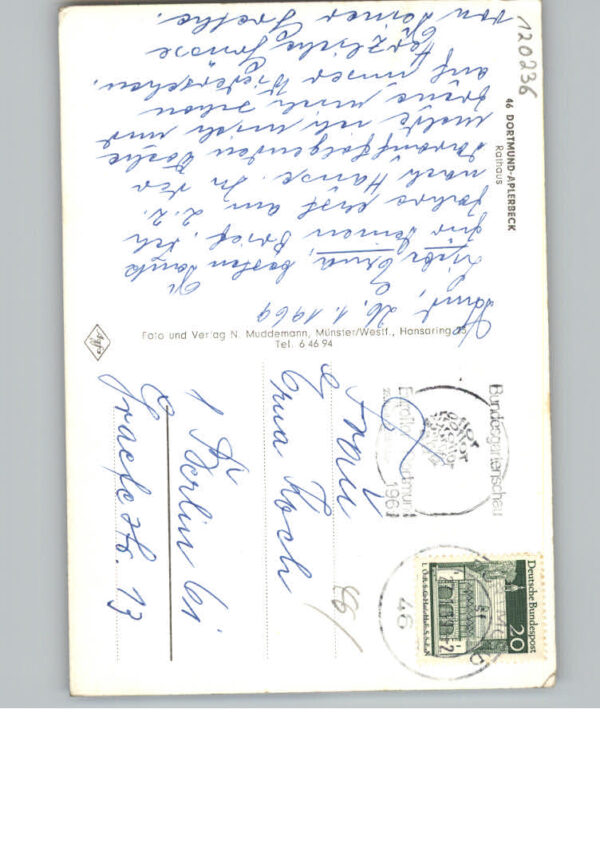 120236
46 DORTMUND-APLERBECK
Rathaus
Dortmund, 26.1.1969
Liebe Erna, besten Dank
für Deinen Brief. Ich
fahre erst am 2.2.
nach Hause. In der
darauffolgenden Woche
melde ich mich und
freue mich schon
auf unser Wiedersehen.
Herzliche Grüsse
von Deiner Grethe.
Foto und Verlag N. Muddemann, Münster/Westf., Hansaring 65,
Tel. 6 46 94
Agfa
Bundesgartenschau
Euroflor Dortmund
1969
46
Deutsche Bundespost
20
Frau
Erna Koch
1 Berlin 61
Graefestr. 13